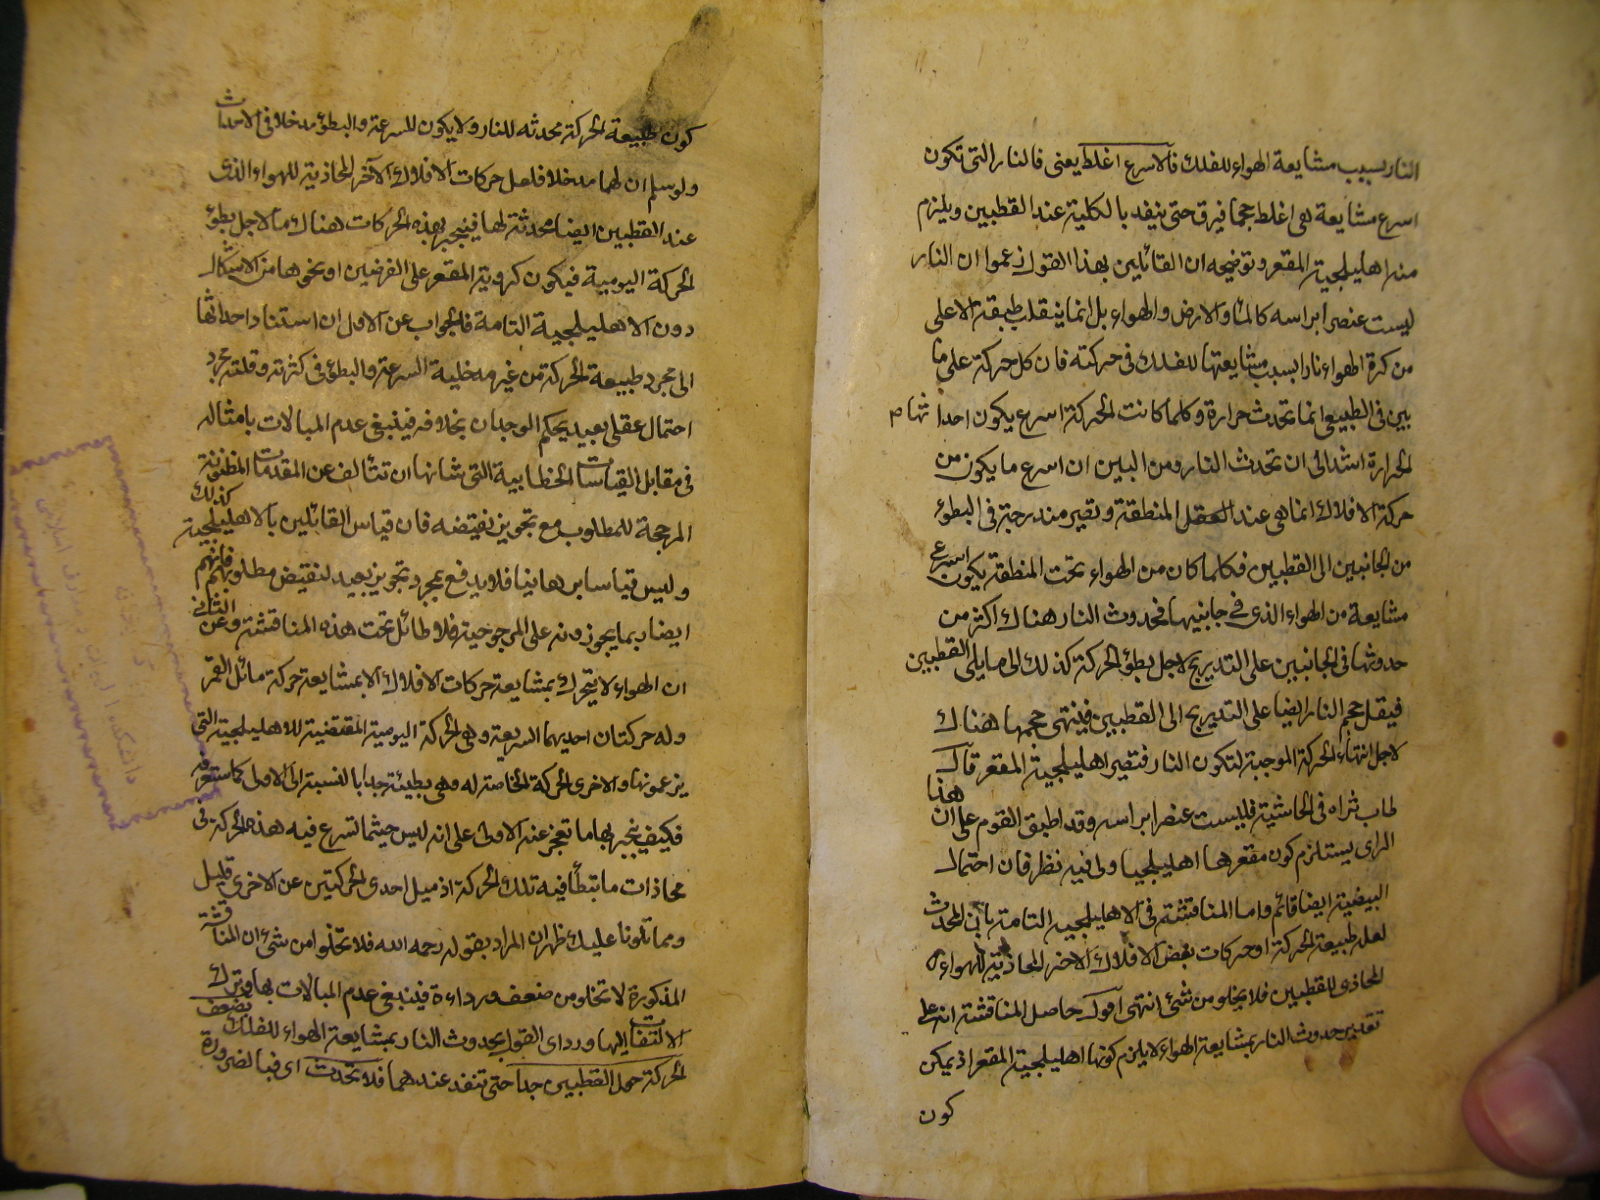 النار بسبب مشايعة الهواء للفلك فالاسرع اغلظ يعنى فالنار التى تكون
اسرع مشايعة هى اغلظ حجما فيرق حتى ينفد بالكلية عند القطبين ويلزم
منه اهليلجية المقعر وتوضيحه ان القائلين بهذا القول زعموا ان النار
ليست عنصرا براسه كالماء والارض والهواء بل انما ينقلب طبقة الاعلى
من كرة الهواء نارا بسبب مشايعتها للفلك فى حركته فان كل حركة على ما
بين فى الطبيعى انما تحدث حرارة وكلما كانت الحركة اسرع يكون احداثها
الحرارة اشد الى ان تحدث النار ومن البين ان اسرع ما يكون من
حركة الافلاك انما هى عند المنطقة وتصير مندرجة فى البطؤ
من الجانبين الى القطبين فكلما كان من الهواء تحت المنطقة يكون اسرع
مشايعة من الهواء الذى فى جانبيها فحدوث النار هناك اكثر من
حدوثها فى الجانبين على التدريج لاجل بطؤ الحركة كذلك الى ما يلى القطبين
فيقل حجم النار ايضا على التدريج الى القطبين فينتهى حجمها هناك
لاجل انتهاء الحركة الموجبة لتكون النار فتصير اهليلجية المقعر قال
طاب ثراه فى الحاشية فليست عنصرا براسه وقد اطبق القوم على ان هذا
الراى يستلزم كون مقعرها اهليلجيا ولى فيه نظر فان احتمال
البيضية ايضا قائم واما المناقشة فى الاهليلجية التامة بان المحدث
لعله طبيعة الحركة او حركات بعض الافلاك الاخر المحاذية للهواء
المحاذى للقطبين فلا يخلو من شئ انتهى اقول حاصل المناقشة انه على
تقدير حدوث النار بمشايعة الهواء لا يلزم كونها اهليلجية المقعر اذ يمكن
كون
كون طبيعة الحركة محدثه للنار ولا يكون للسرعة والبطؤ مدخلا فى الاحداث
ولو سلم ان لهما مدخلا فلعل حركات الافلاك الآخر المحاذية للهواء الذى
عند القطبين ايضا محدثة لها فينجبر بهذه الحركات هناك ما لاجل بطؤ
الحركة اليومية فيكون كروية المقعر على الفرضين او نحوها من الاشكال
دون الاهليلجية التامة فالجواب عن الاول ان استناد احداثها
الى مجرد طبيعة الحركة من غير مدخلية السرعة والبطؤ فى كثرته وقلته مجرد
احتمال عقلى بعيد يحكم الوجدان بخلافه فينبغى عدم المبالات بامثاله
فى مقابل القياسات الخطابية التى شانها ان تتالف عن المقدمات المظنونة
المرجحة للمطلوب مع تجويز نقيضه فان قياس القائلين بالاهليلجية كذلك
وليس قياسا برهانيا فلا يدفع بمجرد تجويز بعيد لنقيض مطلوبهم فانهم
ايضا ربما يجوزونه على المرجوحية فلا طائل تحت هذه المناقشة وعن الثانى
ان الهواء لا يتحرك بمشايعة حركات الافلاك الا بمشايعة حركة مائل القمر
وله حركتان احديهما السريعة وهى الحركة اليومية المقتضية للاهليلجية التى
يزعمونها والاخرى الحركة الخاصة له وهى بطيئة جدا بالنسبة الى الاولى كما ستعرفه
فكيف ينجبر بها ما تعجز عنه الاولى على انه ليس حيثما تسرع فيه هذه الحركة فى
محاذات ما تبطأ فيه تلك الحركة اذ ميل احدى الحركتين عن الاخرى قليل
ومما تلونا عليك ظهر ان المراد بقوله رحمه الله فلا تخلوا من شئ ان المناقشة
المذكورة لا تخلو من ضعف ورداءة فينبغى عدم المبالات بها وترك
الالتفات اليها ورد اى القول بحدوث النار بمشايعة الهواء للفلك بضعف
الحركة حول القطبين جدا حتى تنفد عندهما فلا تحدث اى فبالضرورة